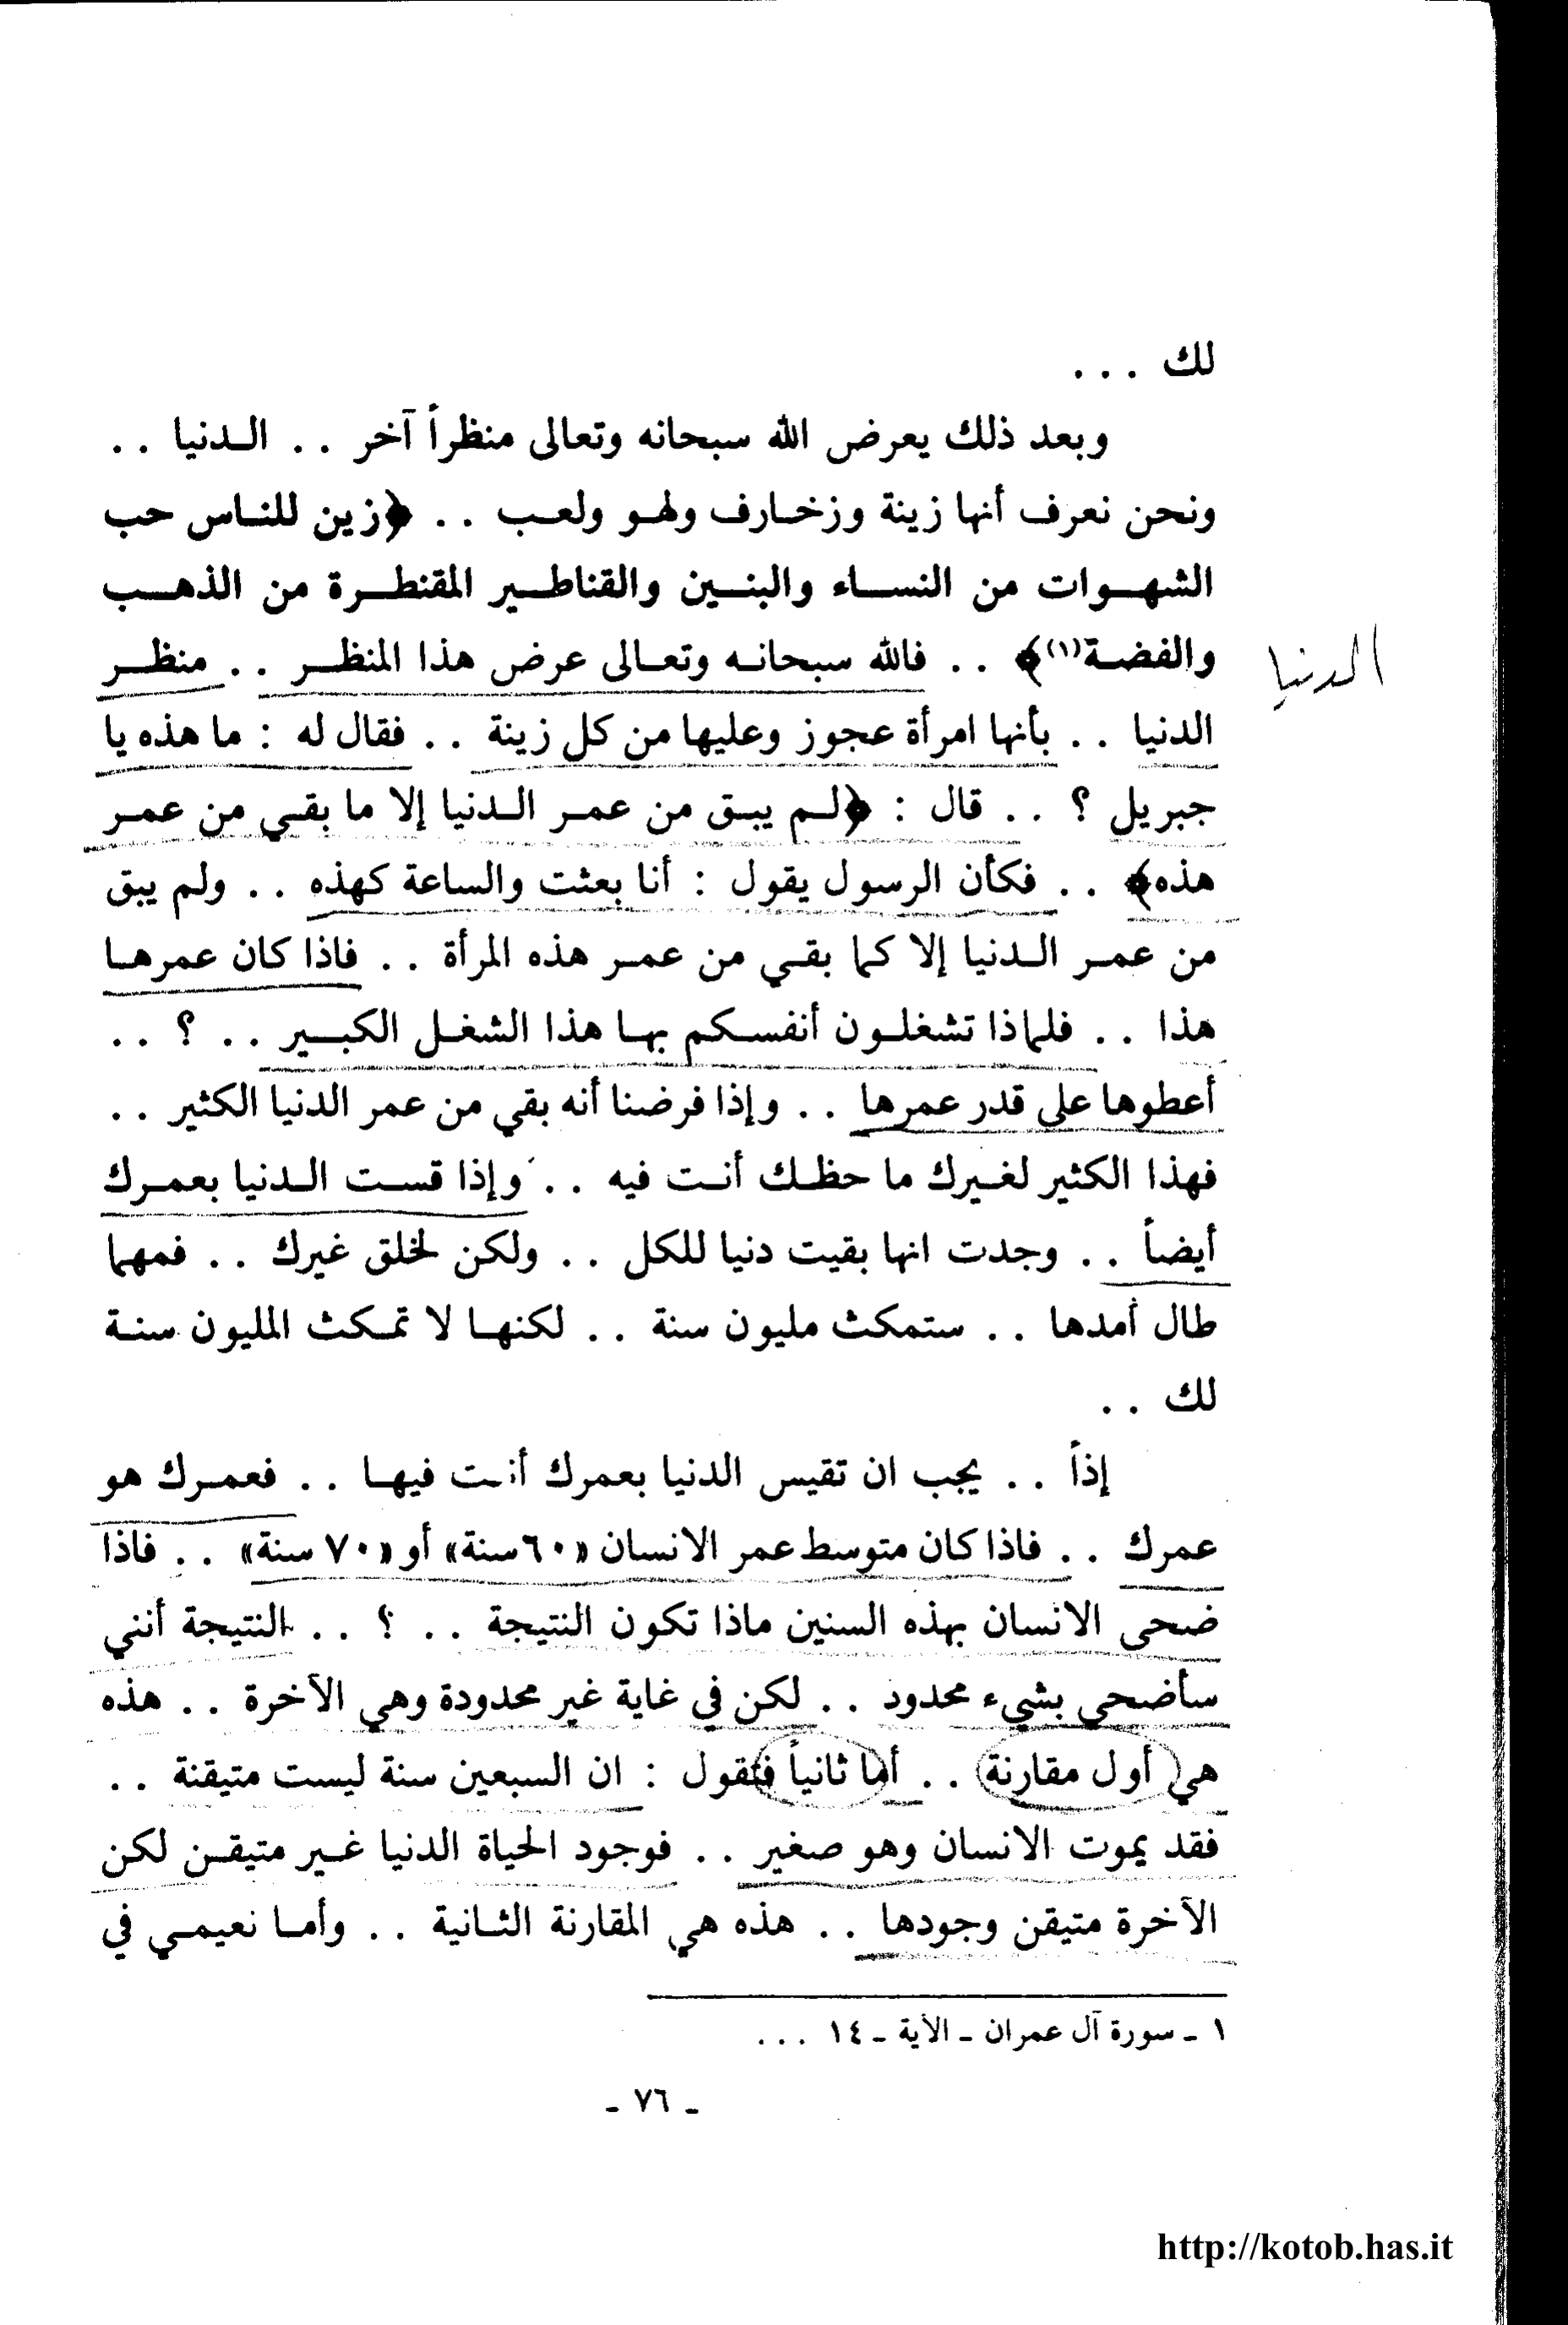 لك . . .
وبعد ذلك يعرض الله سبحانه وتعالى منظراً آخر . . الـدنيا . .
ونحن نعرف أنها زينة وزخـارف ولهـو ولعـب . . ﴿زين للنـاس حب
الشهـوات من النسـاء والبنـين والقناطـير المقنطـرة من الذهـب
والفضـة(١)﴾ . . فالله سبحانـه وتعـالى عرض هذا المنظـر . . منظـر
الدنيا . . بأنها امرأة عجوز وعليها من كل زينة . . فقال له : ما هذه يا
جبريل ؟ . . قال : ﴿لـم يبـق من عمـر الـدنيا إلا ما بقـي من عمـر
هذه﴾ . . فكأن الرسول يقول : أنا بعثت والساعة كهذه . . ولم يبق
من عمـر الـدنيا إلا كما بقـي من عمـر هذه المرأة . . فاذا كان عمرهـا
هذا . . فلماذا تشغلـون أنفسـكم بهـا هذا الشغـل الكبـير . . ؟ . .
أعطوها على قدر عمرها . . وإذا فرضنا أنه بقي من عمر الدنيا الكثير . .
فهذا الكثير لغـيرك ما حظـك أنـت فيه . . وإذا قسـت الـدنيا بعمـرك
أيضاً . . وجدت انها بقيت دنيا للكل . . ولكن لخلق غيرك . . فمهما
طال أمدها . . ستمكث مليون سنة . . لكنهـا لا تمـكث المليون سنـة
لك . .
إذاً . . يجب ان تقيس الدنيا بعمرك أنـت فيهـا . . فعمـرك هو
عمرك . . فاذا كان متوسط عمر الانسان «٦٠سنة» أو «٧٠ سنة» . . فاذا
ضحى الانسان بهذه السنين ماذا تكون النتيجة . . ؟ . . النتيجة أنني
سأضحي بشيء محدود . . لكن في غاية غير محدودة وهي الآخرة . . هذه
هي أول مقارنة . . أما ثانياً فنقول : ان السبعين سنة ليست متيقنة . .
فقد يموت الانسان وهو صغير . . فوجود الحياة الدنيا غـير متيقـن لكن
الآخرة متيقن وجودها . . هذه هي المقارنة الثـانية . . وأمـا نعيمـي في
الدنيا
١ ـ سورة آل عمران ـ الآية ـ ١٤ . . .
ـ ٧٦ ـ
http://kotob.has.it